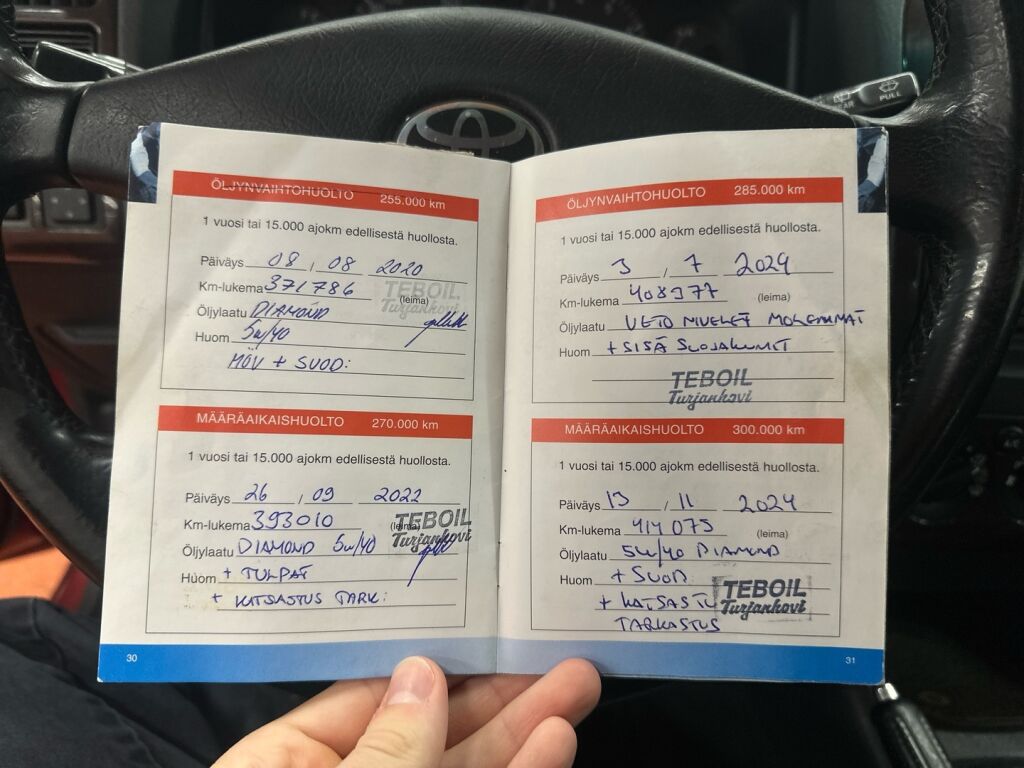 PULL
ÖLJYNVAIHTOHUOLTO 255.000 km
1 vuosi tai 15.000 ajokm edellisestä huollosta.
Päiväys 08 / 08 2020
Km-lukema 371786 (leima)
TEBOIL
Turjanhovi
Öljylaatu DIAMOND
Huom 5w/40
MÖV + SUOD:
MÄÄRÄAIKAISHUOLTO 270.000 km
1 vuosi tai 15.000 ajokm edellisestä huollosta.
Päiväys 26 / 09 2022
Km-lukema 393010 (leima)
TEBOIL
Turjanhovi
Öljylaatu DIAMOND 5w/40
Huom + TULPAT
+ KATSASTUS TARK:
30
ÖLJYNVAIHTOHUOLTO 285.000 km
1 vuosi tai 15.000 ajokm edellisestä huollosta.
Päiväys 3 / 7 2024
Km-lukema 408977 (leima)
Öljylaatu VETO NIVELET MOLEMMAT
Huom + SISÄ SUOJAKUMIT
TEBOIL
Turjanhovi
MÄÄRÄAIKAISHUOLTO 300.000 km
1 vuosi tai 15.000 ajokm edellisestä huollosta.
Päiväys 13 / 11 2024
Km-lukema 414075 (leima)
Öljylaatu 5w/40 DIAMOND
Huom + SUOD
+ KATSASTU
TEBOIL
Turjanhovi
TARKASTUS
31